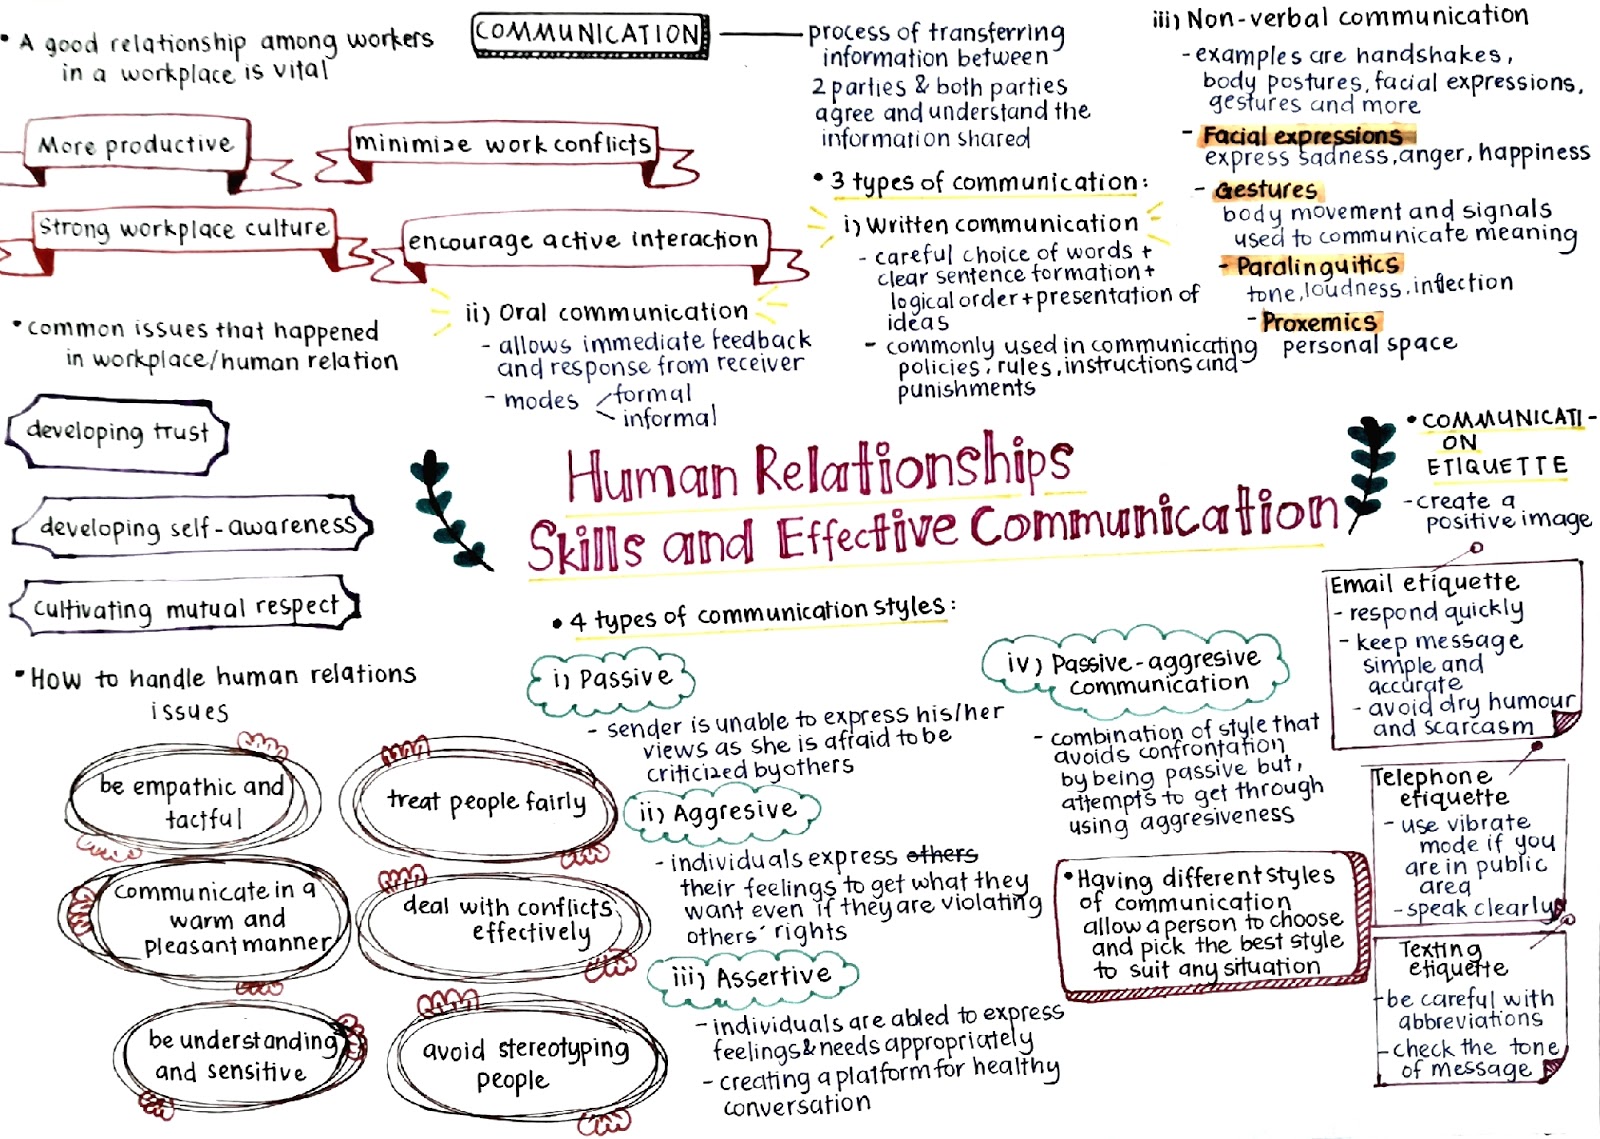 • A good relationship among workers
in a workplace is vital
More productive
minimize work conflicts
Strong workplace culture
encourage active interaction
• common issues that happened
in workplace/human relation
developing trust
developing self-awareness
cultivating mutual respect
• How to handle human relations
issues
be empathic and
tactful
treat people fairly
communicate in a
warm and
pleasant manner
deal with conflicts
effectively
be understanding
and sensitive
avoid stereotyping
people
COMMUNICATION
process of transferring
information between
2 parties & both parties
agree and understand the
information shared
• 3 types of communication:
i) Written communication
- careful choice of words +
clear sentence formation +
logical order + presentation of
ideas
- commonly used in communicating
policies, rules, instructions and
punishments
ii) Oral communication
- allows immediate feedback
and response from receiver
- modes
formal
informal
iii) Non-verbal communication
- examples are handshakes,
body postures, facial expressions,
gestures and more
- Facial expressions
express sadness, anger, happiness
- Gestures
body movement and signals
used to communicate meaning
- Paralinguitics
tone, loudness, inflection
- Proxemics
personal space
Human Relationships
Skills and Effective Communication
• 4 types of communication styles:
i) Passive
- sender is unable to express his/her
views as she is afraid to be
criticized by others
ii) Aggresive
- individuals express others
their feelings to get what they
want even if they are violating
others' rights
iii) Assertive
- individuals are abled to express
feelings & needs appropriately
- creating a platform for healthy
conversation
iv) Passive-aggresive
communication
- combination of style that
avoids confrontation
by being passive but,
attempts to get through
using aggresiveness
• Having different styles
of communication
allow a person to choose
and pick the best style
to suit any situation
• COMMUNICATI-
ON
ETIQUETTE
- create a
positive image
Email etiquette
- respond quickly
- keep message
simple and
accurate
- avoid dry humour
and scarcasm
Telephone
etiquette
- use vibrate
mode if you
are in public
area
- speak clearly
Texting
etiquette
- be careful with
abbreviations
- check the tone
of message